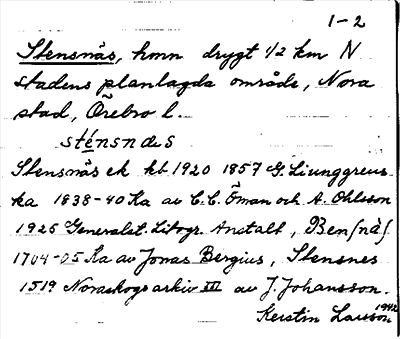 1-2
Stensnäs, hmn drygt 1/2 km N
stadens planlagda område, Nora
stad, Örebro l.
sténsnäs
Stensnäs ek kb 1920 1857 G. Ljunggrens
ka 1838-40 Ka av C.C. Öman och A. Ohlsson
1925 Generalst. Litogr. Anstalt, Ben(nä)
1704-05 Ka av Jonas Bergius, Stensnes
1519 Noraskogs arkiv III av J. Johansson.
Kerstin Larsson 1942